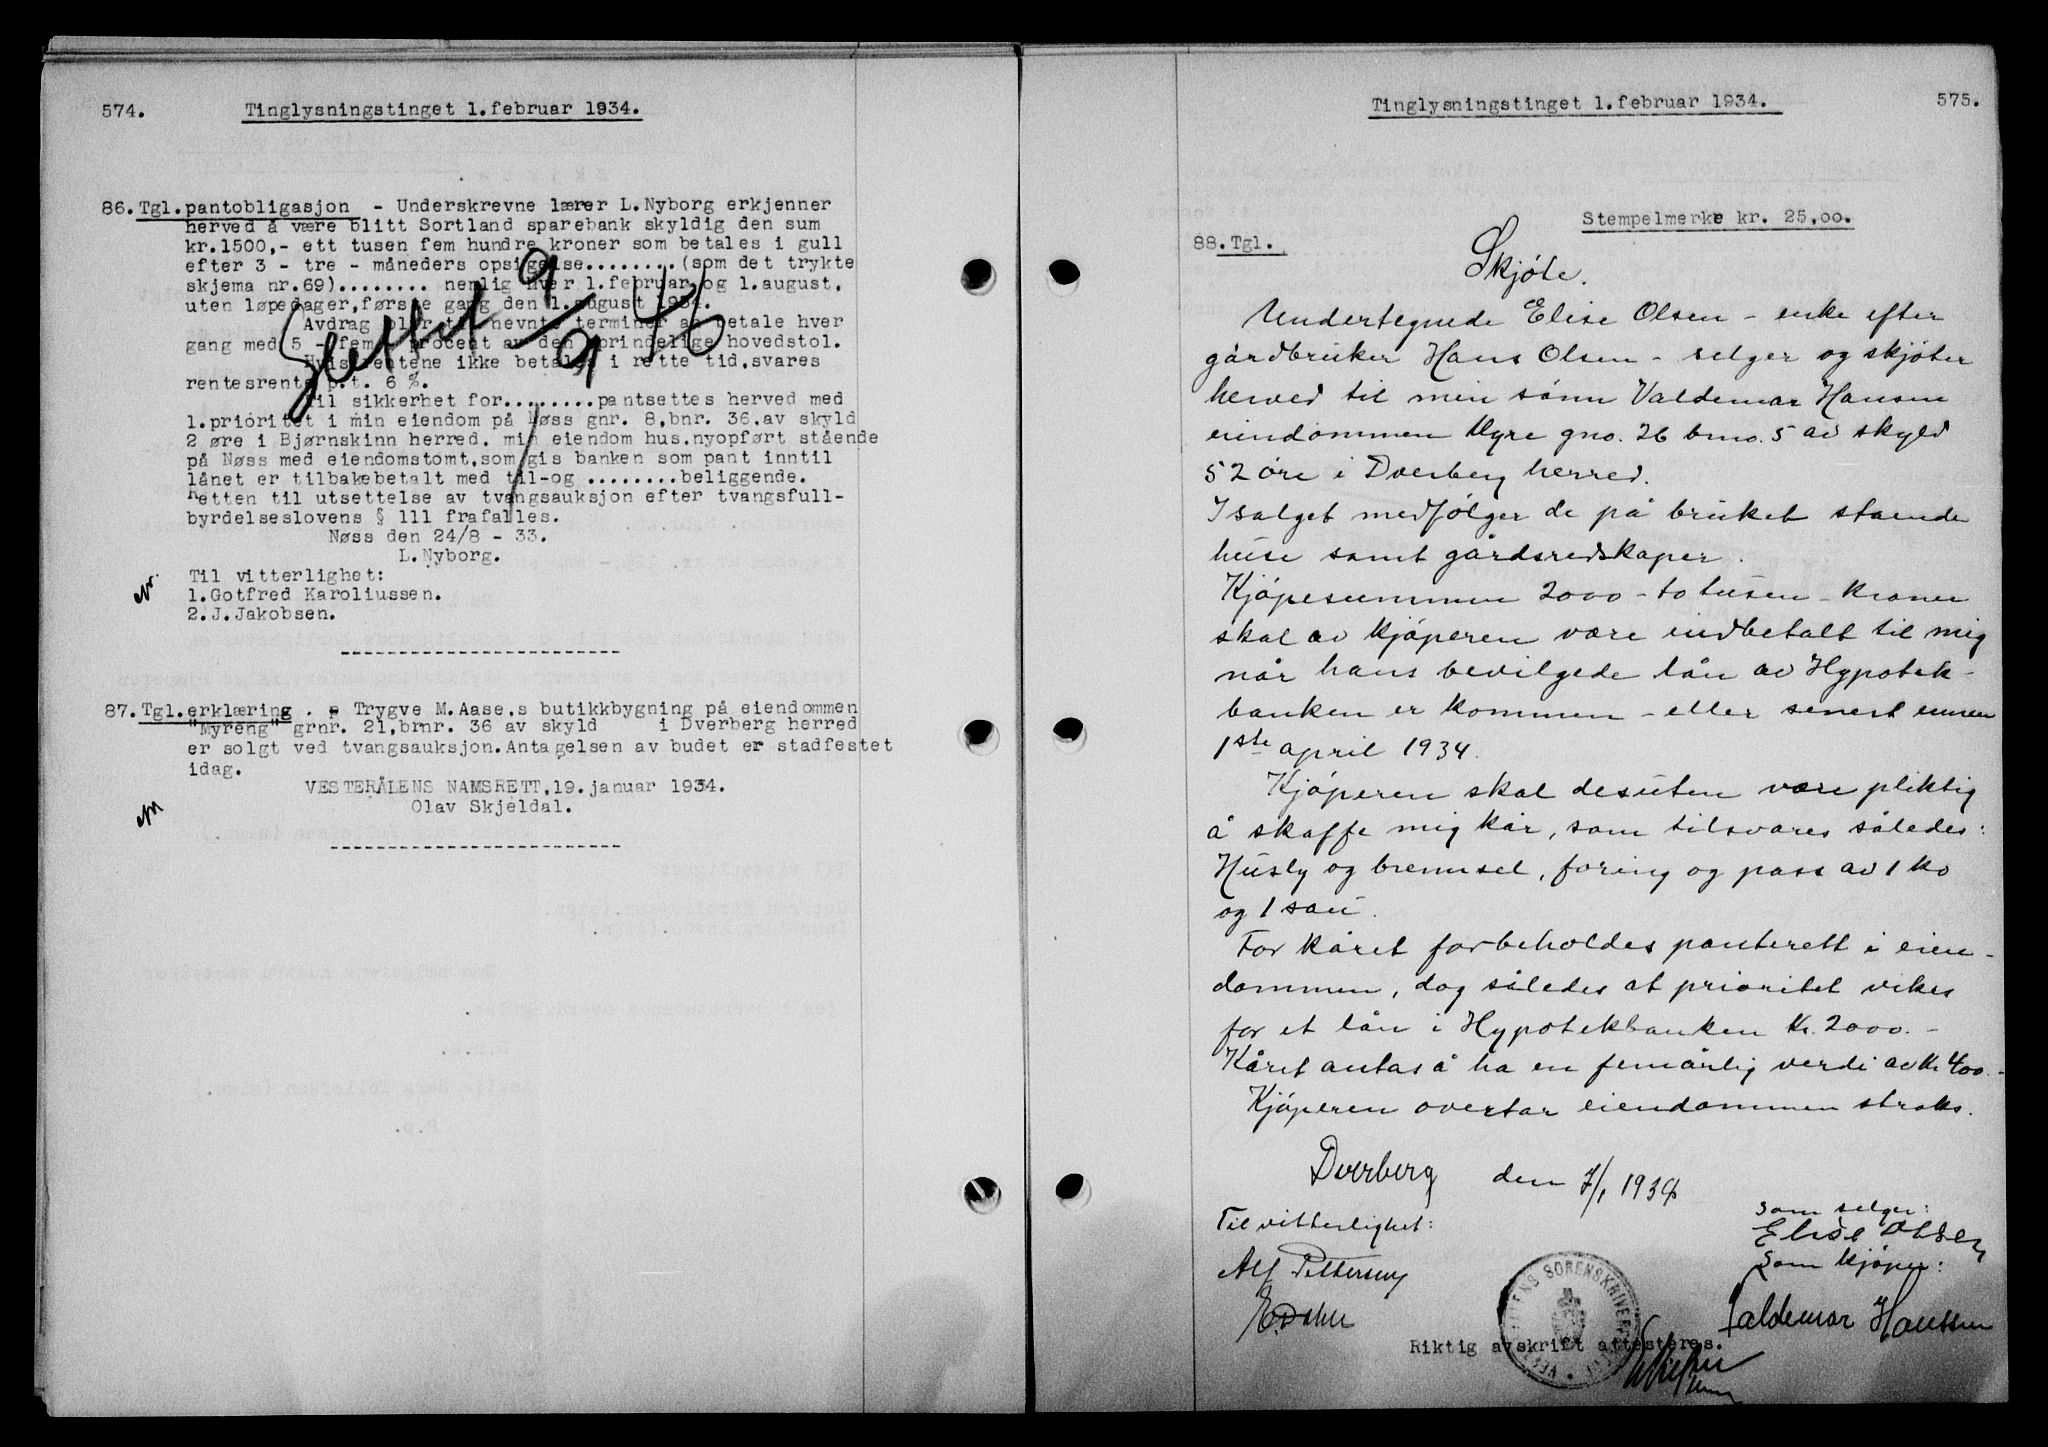 574.
Tinglysningstinget 1.februar 1934.
86.Tgl.pantobligasjon - Underskrevne lærer L.Nyborg erkjenner
herved å være blitt Sortland sparebank skyldig den sum
kr.1500,- ett tusen fem hundre kroner som betales i gull
efter 3 - tre - måneders opsigelse........(som det trykte
skjema nr.69)........ nemlig hver 1.februar og 1.august.
uten løpedager,første gang den 1.august 1934.
Avdrag blir til nevnte terminer at betale hver
gang med 5 - fem - procent av den oprindelige hovedstol.
Hvis rentene ikke betales i rette tid.svares
rentesrente p.t. 6 %.
Til sikkerhet for.........pantsettes herved med
1.prioritet i min eiendom på Nøss gnr. 8,bnr. 36.av skyld
2 øre i Bjørnskinn herred. min eiendom hus.nyopført stående
på Nøss med eiendomstomt,som gis banken som pant inntil
lånet er tilbakebetalt med til-og ........beliggende.
Retten til utsettelse av tvangsauksjon efter tvangsfull-
byrdelseslovens § 111 frafalles.
Nøss den 24/8 - 33.
L.Nyborg.
Til vitterlighet:
1.Gotfred Karoliussen.
2.J.Jakobsen.
Slettet 9/9 46
87.Tgl.erklæring . - Trygve M.Aase,s butikkbygning på eiendommen
"Myreng" grnr. 21,brnr. 36 av skyld i Dverberg herred
er solgt ved tvangsauksjon.Antagelsen av budet er stadfestet
idag.
VESTERÅLENS NAMSRETT,19.januar 1934.
Olav Skjeldal.
Tinglysningstinget 1.februar 1934.
575.
Stempelmerke kr. 25,00.
88.Tgl.
Skjøte.
Undertegnede Elise Olsen - enke efter
gårdbruker Hans Olsen - selger og skjøter
herved til min sønn Valdemar Hansen
eiendommen Myre gno. 26 brno. 5 av skyld
52 øre i Dverberg herred.
I salget medfølger de på bruket stående
huse samt gårdsredskaper.
Kjøpesummen 2000 - to tusen - kroner
skal av kjøperen være indbetalt til mig
når hans bevilgede lån av Hypotek-
banken er kommen - eller senest innen
1ste april 1934.
Kjøperen skal desuten være pliktig
å skaffe mig kår, som tilsvares således:
Husly og brensel, foring og pass av 1 ko
og 1 sau.
For kåret forbeholdes panterett i eien-
dommen, dog således at prioritet vikes
for et lån i Hypotekbanken kr. 2000.-
Kåret antas å ha en femårlig verdi av kr 400.-
Kjøperen overtar eiendommen straks.
Dverberg den 7/1 1934
Til vitterlighet:
som selger:
Elise Olsen
Alf Pettersen
som kjøper:
E. Dahle
Valdemar Hanssen
Riktig avskrift attesteres.